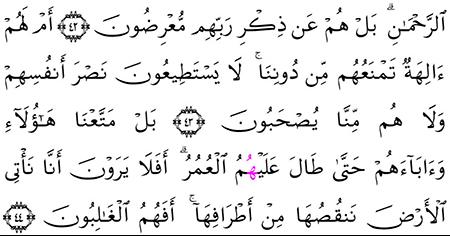 ٱلرَّحۡمَٰنِۚ بَلۡ هُمۡ عَن ذِكۡرِ رَبِّهِم مُّعۡرِضُونَ ٤٢ أَمۡ لَهُمۡ
ءَالِهَةٞ تَمۡنَعُهُم مِّن دُونِنَاۚ لَا يَسۡتَطِيعُونَ نَصۡرَ أَنفُسِهِمۡ
وَلَا هُم مِّنَّا يُصۡحَبُونَ ٤٣ بَلۡ مَتَّعۡنَا هَٰٓؤُلَآءِ
وَءَابَآءَهُمۡ حَتَّىٰ طَالَ عَلَيۡهِمُ ٱلۡعُمُرُۗ أَفَلَا يَرَوۡنَ أَنَّا نَأۡتِي
ٱلۡأَرۡضَ نَنقُصُهَا مِنۡ أَطۡرَافِهَآۚ أَفَهُمُ ٱلۡغَٰلِبُونَ ٤٤